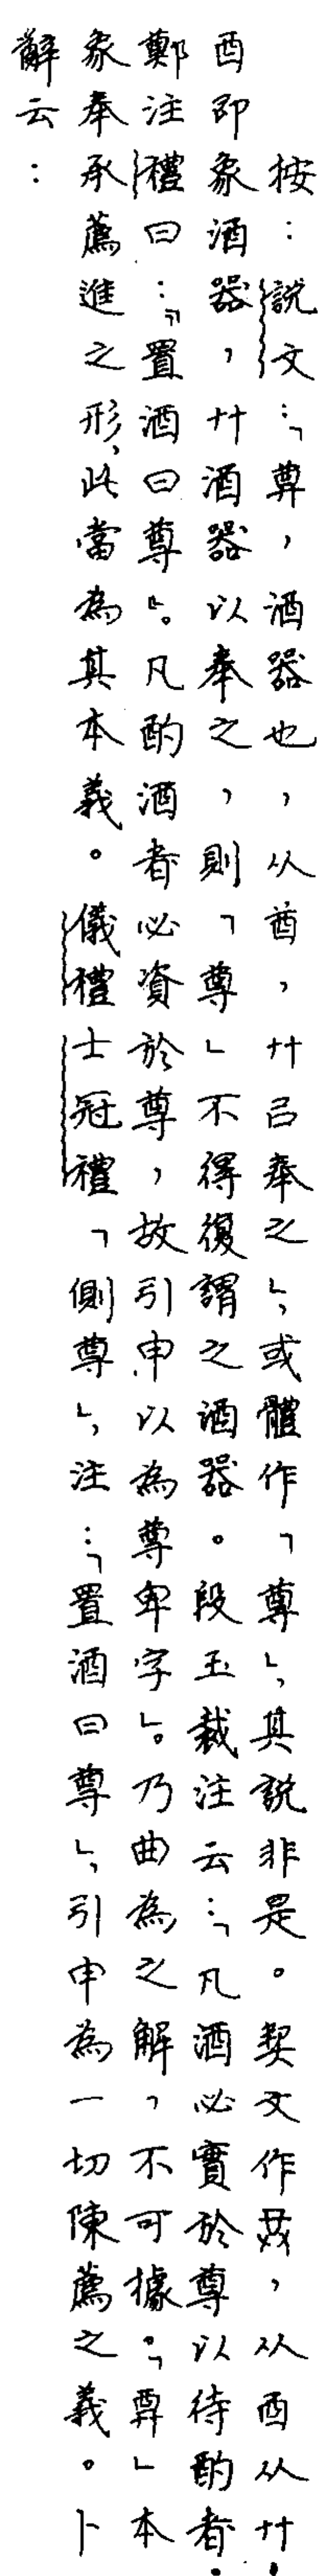 按：說文：「尊，酒器也，从酋，廾㠯奉之」，或體作「尊」，其說非是。契文作，从酉从廾；
酉即象酒器，廾酒器以奉之，則「尊」不得復謂之酒器。段玉裁注云：「凡酒必實於尊以待酌者。
鄭注禮曰：『置酒曰尊』。凡酌酒者必資於尊，故引申以為尊卑字」。乃曲為之解，不可據。「尊」本
象奉承薦進之形，此當為其本義。儀禮士冠禮「側尊」，注：「置酒曰尊」，引申為一切陳薦之義。卜
辭云：